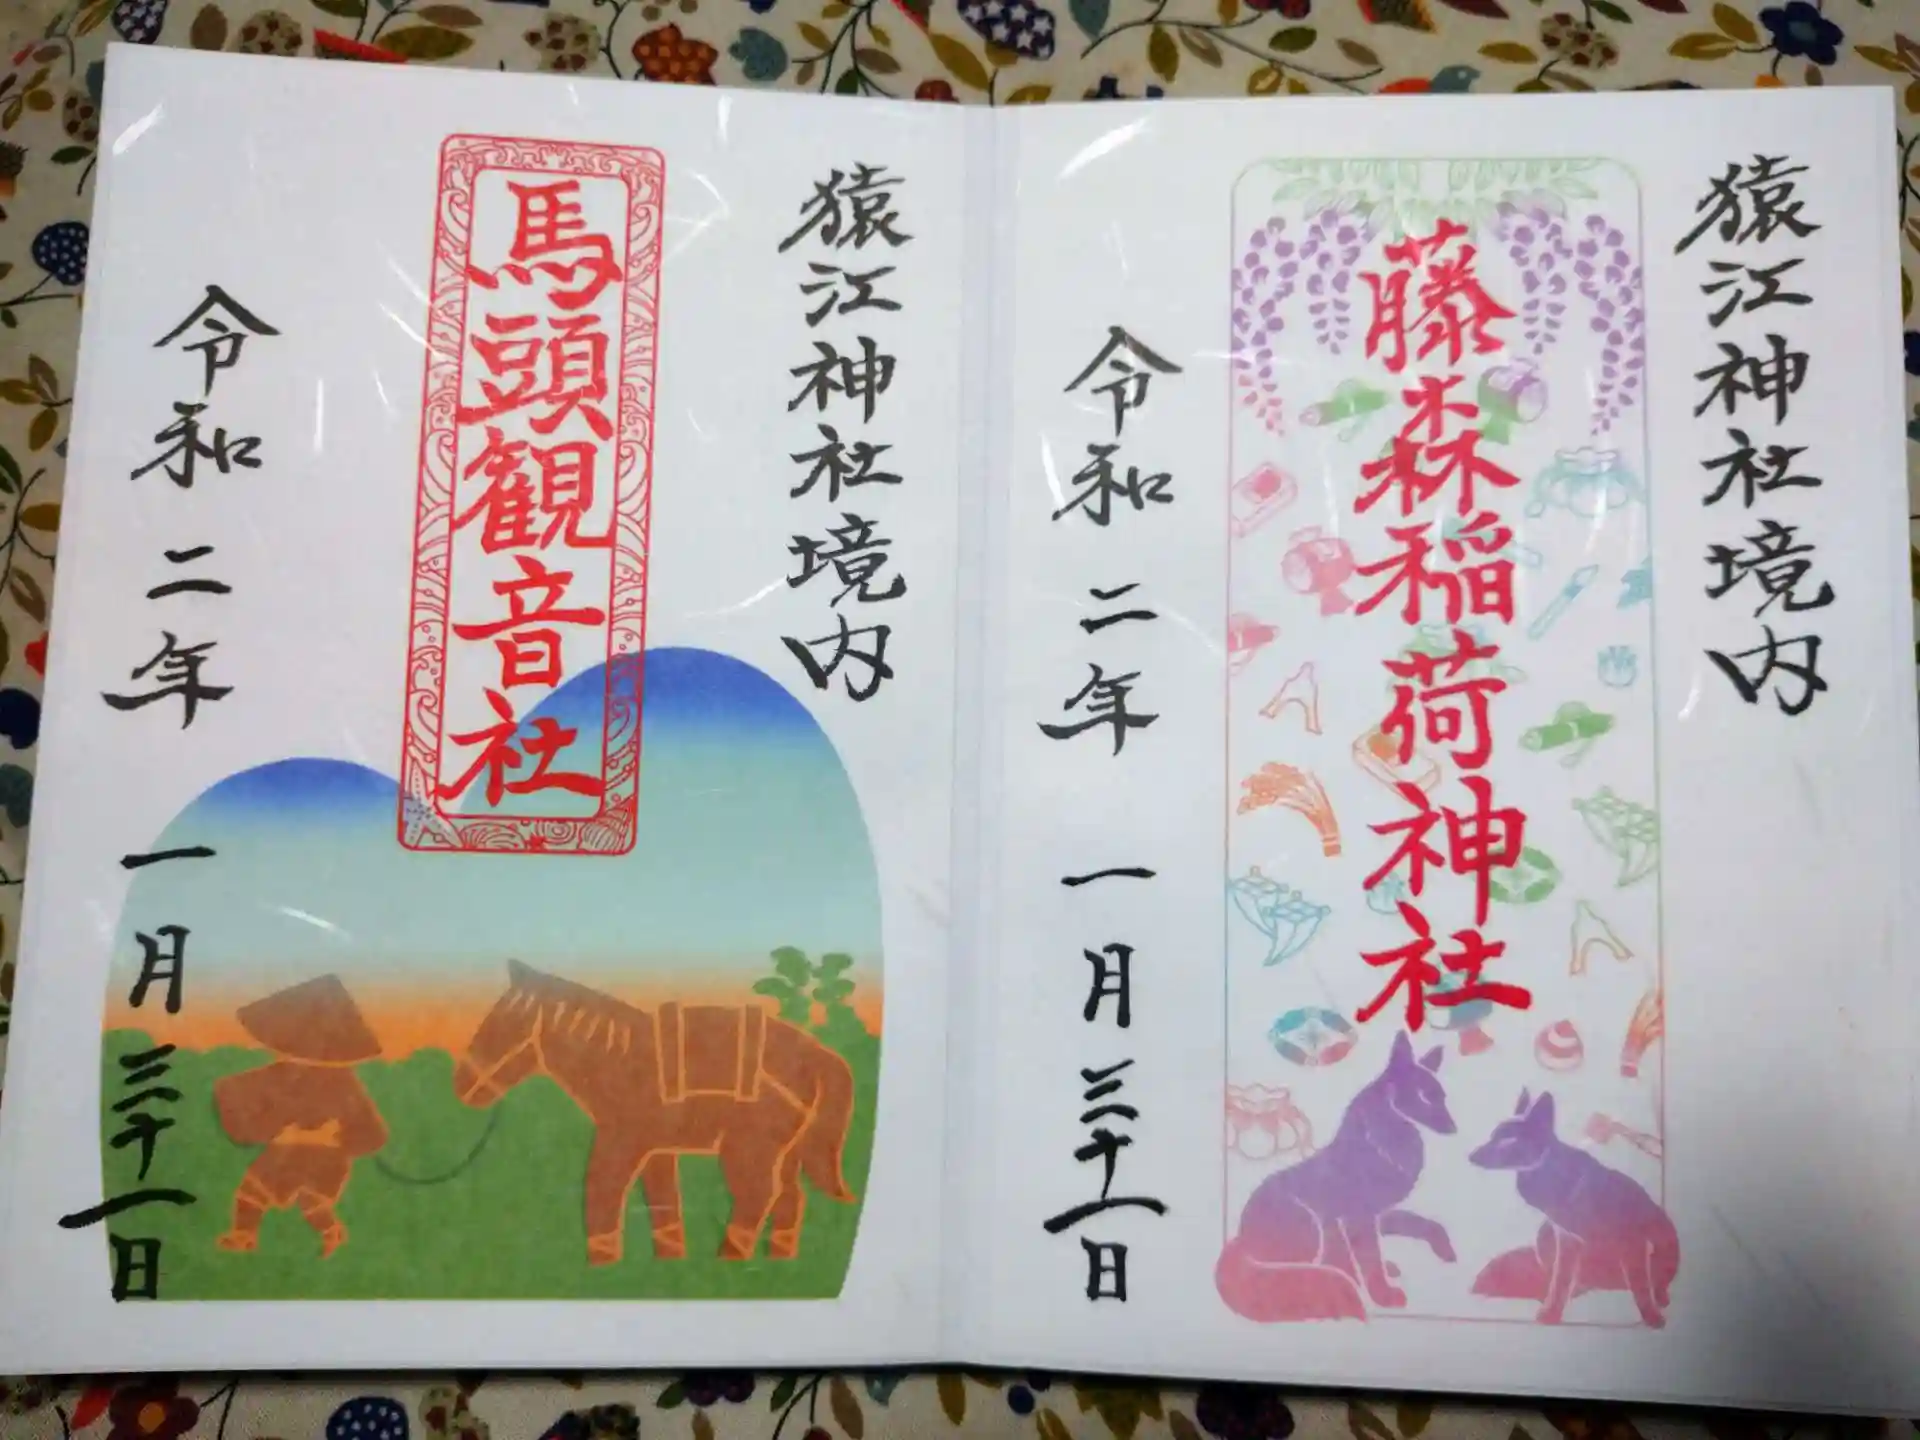 猿江神社境内
藤森稲荷神社
令和二年一月三十一日
猿江神社境内
馬頭観音社
令和二年一月三十一日